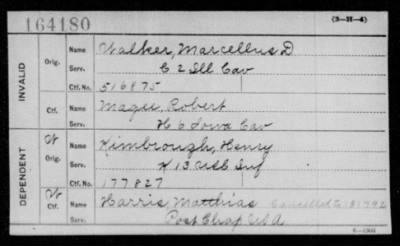 164180
(3-H-4)
INVALID
Orig. Name Walker, Marcellus D
Serv. C 2 Ill Cav
Ctf. No. 516875
Ctf. Name Magee, Robert
Serv. H 6 Iowa Cav
DEPENDENT
W Orig. Name Kimbrough, Henry
Serv. K 13 USC Inf
Ctf. No. 177827
W Ctf. Name Harris, Matthias Cancelled
Serv. Post Chap USA